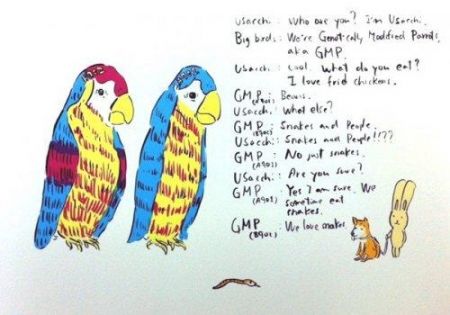 Usacchi : Who are you? I'm Usacchi.
Big birds : We're Genetically Modified Parrots,
aka GMP.
Usacchi : Cool. What do you eat?
I love frid chickens.
GMP : Beans.
Usacchi : What else?
GMP : Snakes and People.
Usacchi : Snakes and People!!??
GMP : No just snakes.
(A902)
Usacchi : Are you sure?
GMP : Yes I am sure. We
(A902) sometime eat
snakes.
GMP : We love snakes.
(B902)